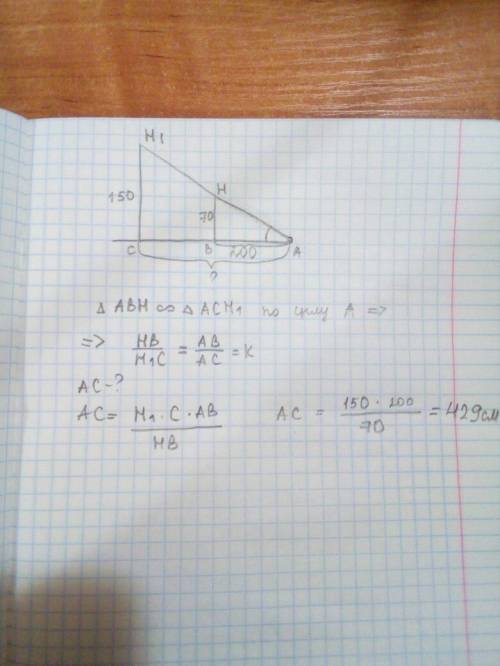 H1
H
150
70
C B 200 A
?
Δ ABH ∞ Δ ACH1 по углу A =>
=> HB/H1C = AB/AC = K
AC-?
AC = H1·C·AB/HB AC = 150·200/70 = 429см